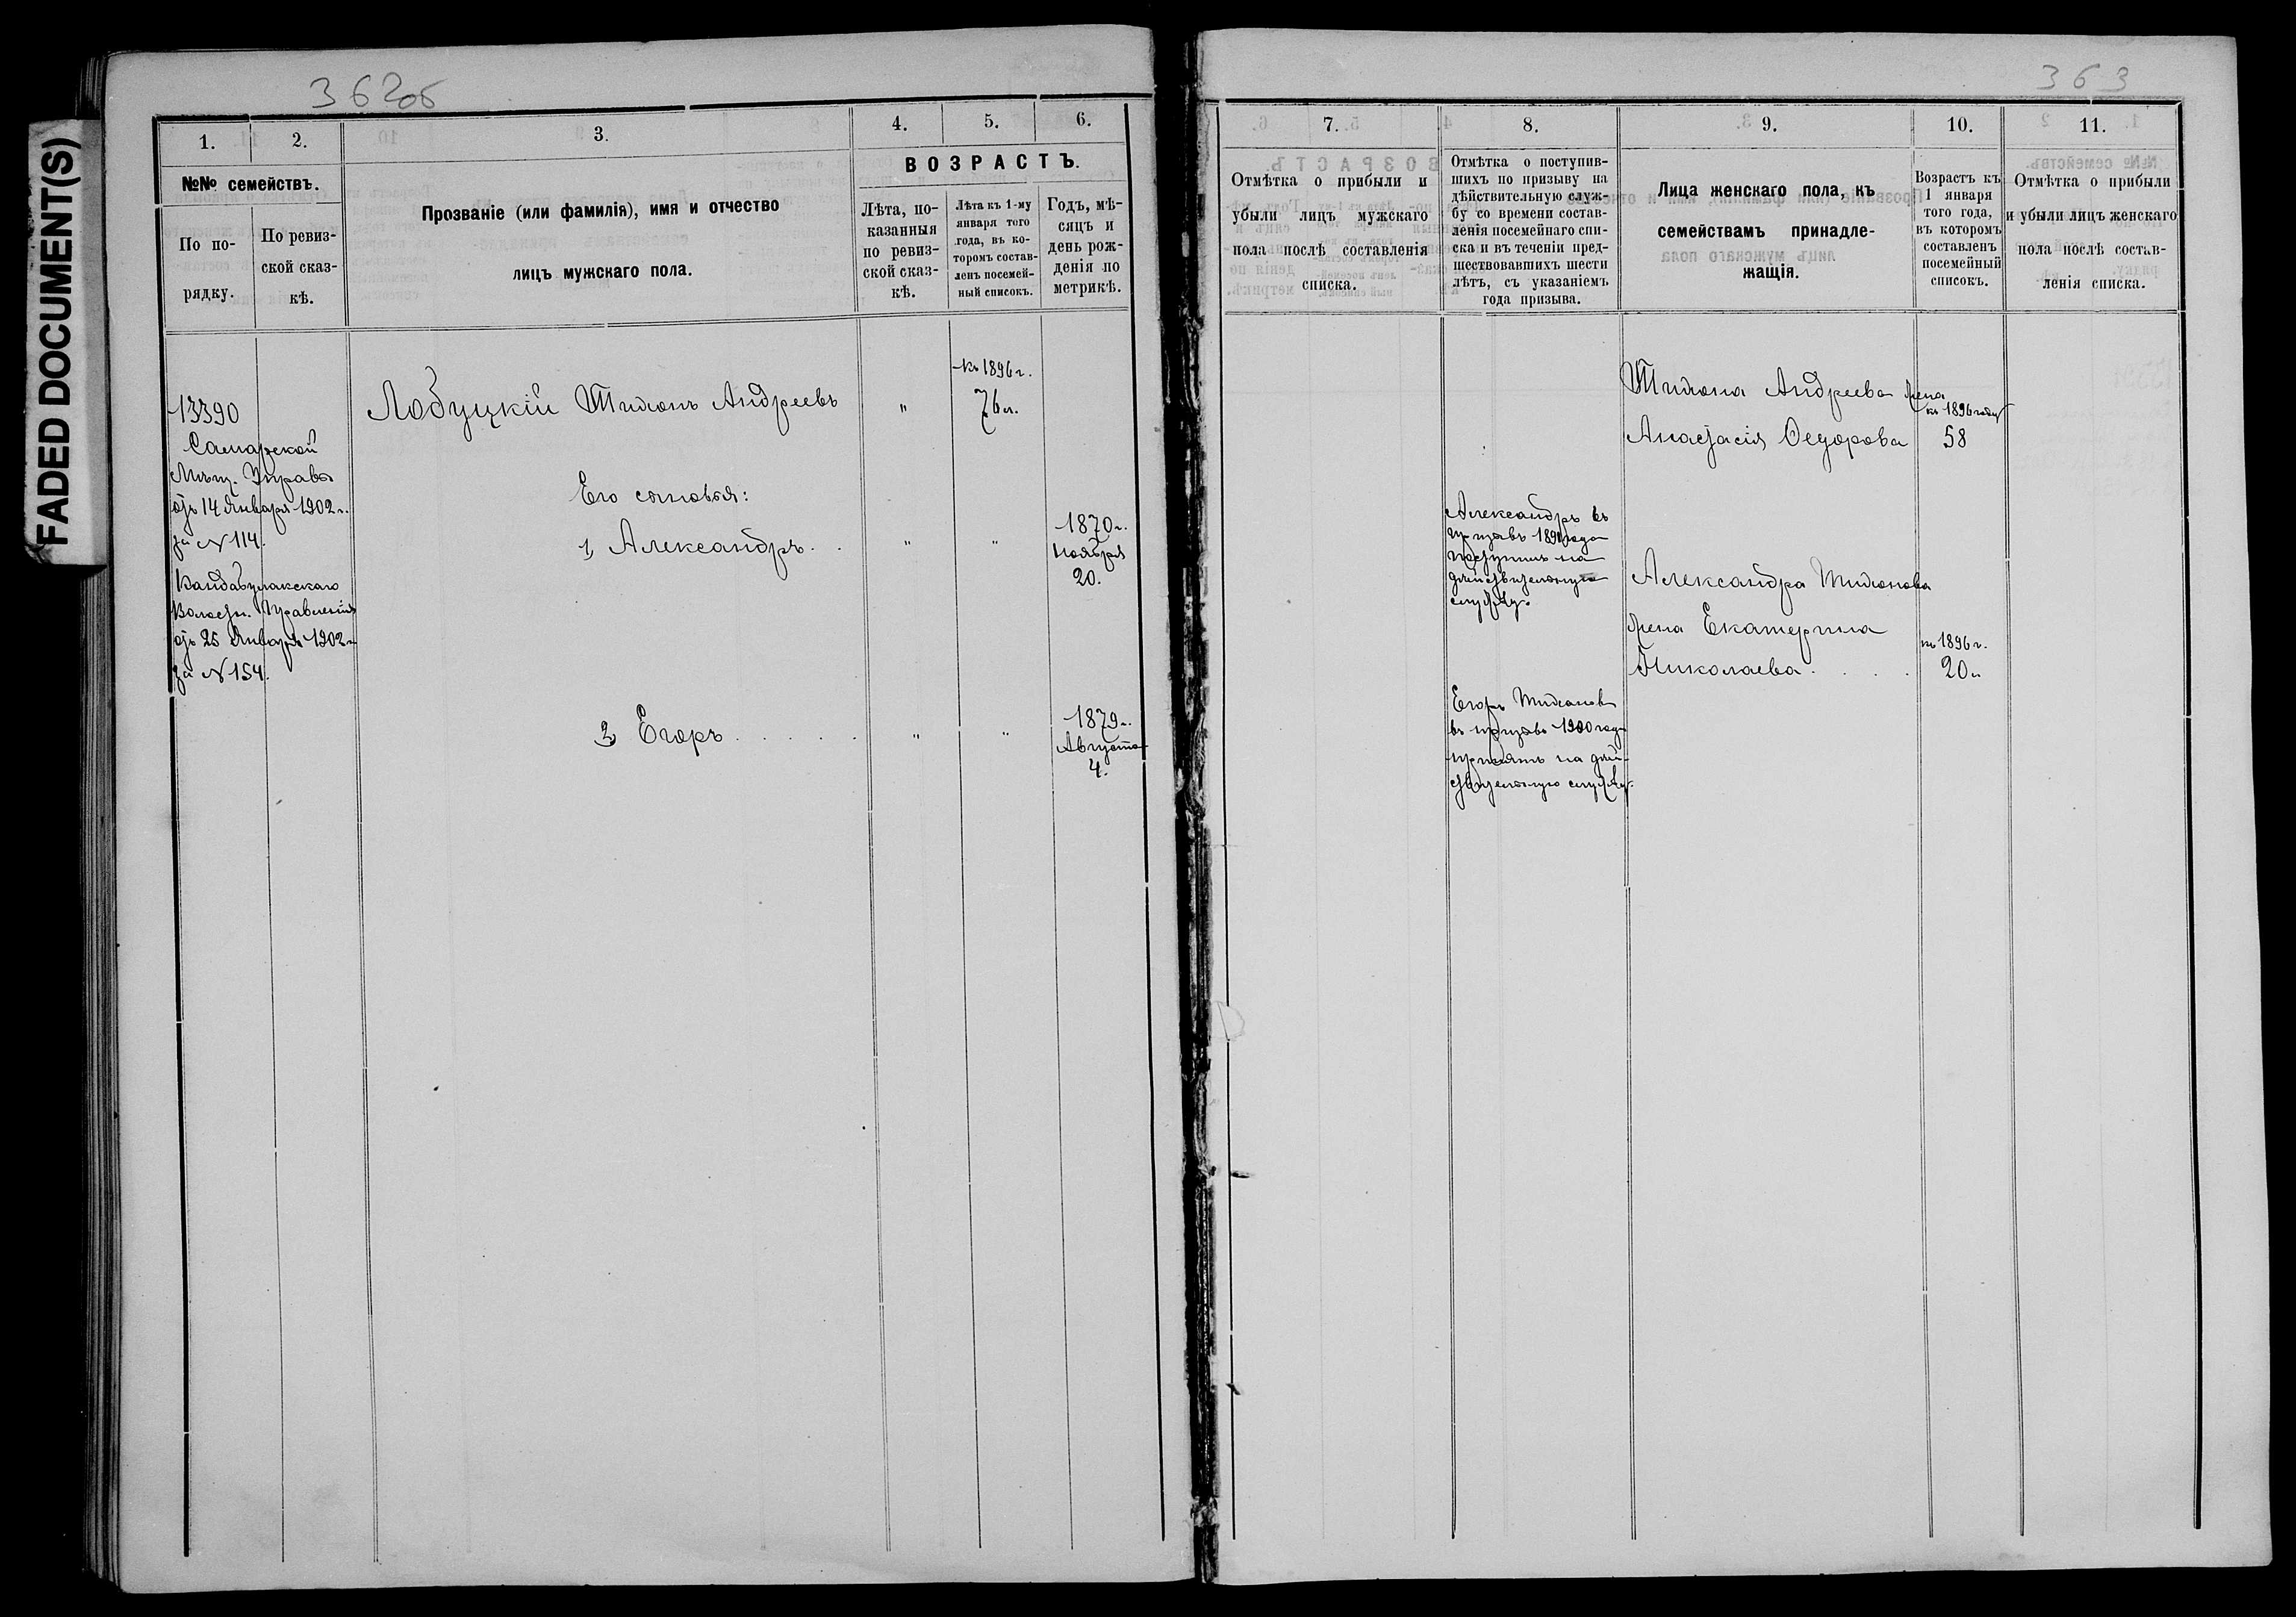 FADED DOCUMENT(S)
362об
1.
2.
3.
4.
5.
6.
№№ семействъ.
По по-
рядку.
По ревиз-
ской сказ-
кѣ.
Прозваніе (или фамилія), имя и отчество
лицъ мужскаго пола.
ВОЗРАСТЪ.
Лѣта, по-
казанныя
по ревиз-
ской сказ-
кѣ.
Лѣта къ 1-му
января того
года, въ ко-
торомъ состав-
ленъ посемей-
ный списокъ.
Годъ, мѣ-
сяцъ и
день рож-
денія по
метрикѣ.
13390
Самарской
Мѣщ. Управы
отъ 14 Января 1902 г.
за № 114.
Кандабулакскаго
Волостн. Правленія
отъ 25 Января 1902 г.
за № 154.
Лобуцкій Тихонъ Андреевъ
"
къ 1896 г.
76 л.
Его сыновья:
1, Александръ
"
"
1870 г.
Ноября
20.
Егоръ
"
"
1879 г.
Августа
4.
363
7.
8.
9.
10.
11.
Отмѣтка о прибыли и
убыли лицъ мужскаго
пола послѣ составленія
списка.
Отмѣтка о поступив-
шихъ по призыву на
дѣйствительную служ-
бу со времени состав-
ленія посемейнаго спи-
ска и въ теченіи пред-
шествовавшихъ шести
лѣтъ, съ указаніемъ
года призыва.
Лица женскаго пола, къ
семействамъ принадле-
жащія.
Возрастъ къ
1 января
того года,
въ которомъ
составленъ
посемейный
списокъ.
Отмѣтка о прибыли
и убыли лицъ женскаго
пола послѣ состав-
ленія списка.
Тихона Андреева жена
Анастасія Федорова
къ 1896 году
58
Александръ въ
призывъ года
поступилъ на
дѣйствительную
службу.
Александра Тихонова
жена Екатерина
Николаева
къ 1896 г.
20 л
Егоръ Тихоновъ
въ призывъ 1900 года
принятъ на дѣй-
ствительную службу.